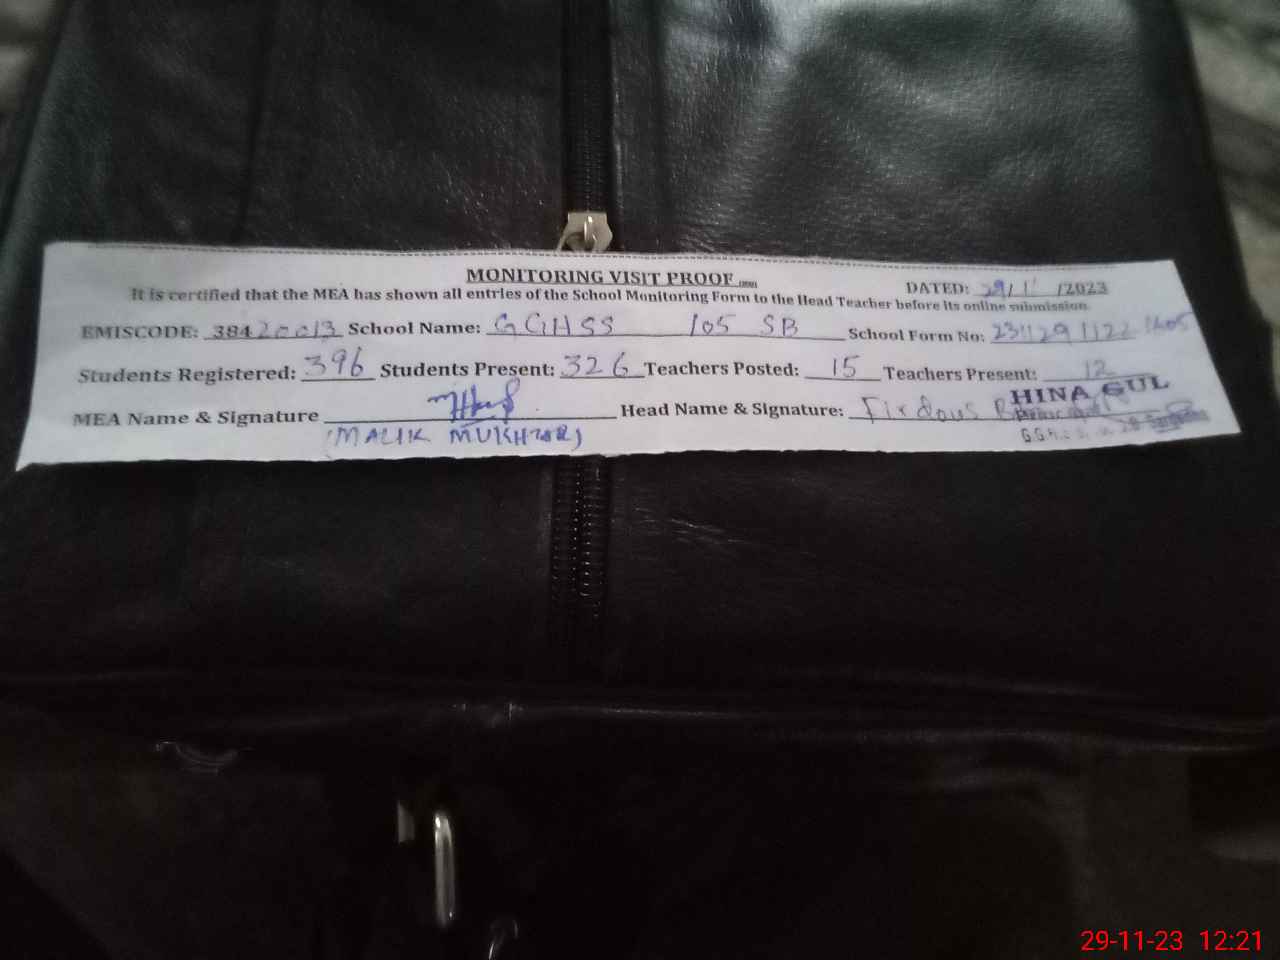 MONITORING VISIT PROOF
DATED: 29/11/2023
It is certified that the MEA has shown all entries of the School Monitoring Form to the Head Teacher before its online submission.
EMISCODE: 38420013 School Name: GGHSS 105 SB School Form No:
Students Registered: 396 Students Present: 326 Teachers Posted: 15 Teachers Present: 12
MEA Name & Signature Head Name & Signature: Firdous
(MALIK MUKHTAR)
HINA GUL
29-11-23 12:21